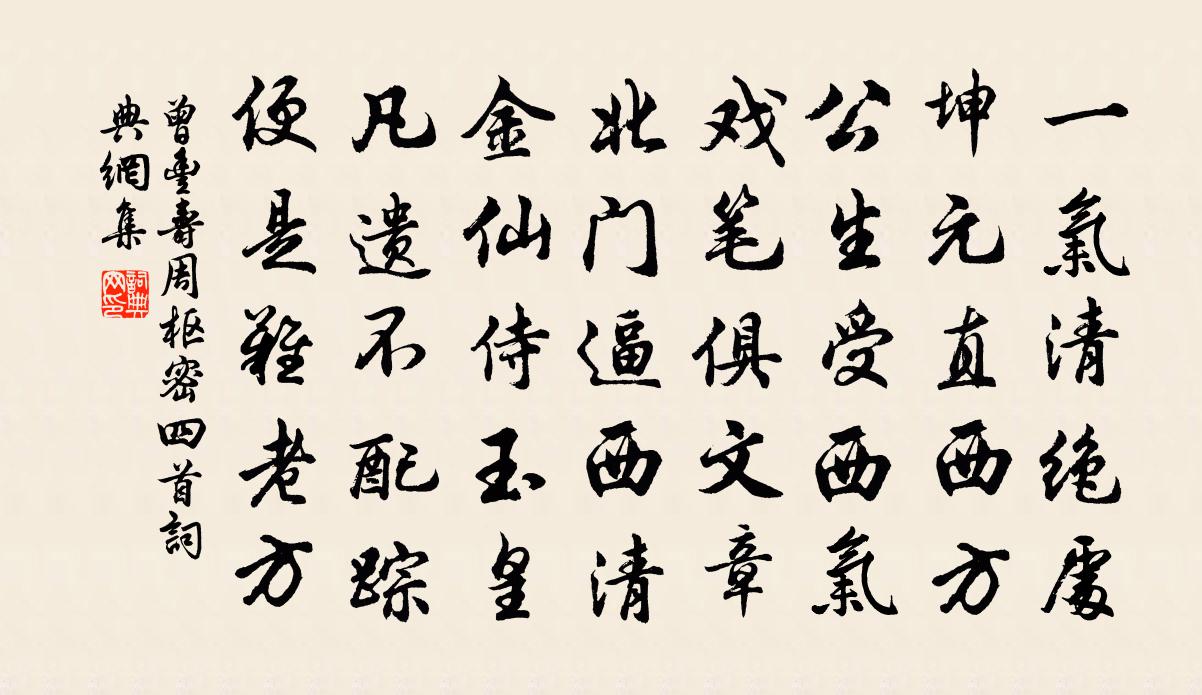 一氣清絶處
坤元直西方
公生受西氣
戏笔俱文章
北门逼西清
金仙侍玉皇
凡遗不配踪
便是難老方
曾豐壽周枢密四首詞
典網集
詞典网印